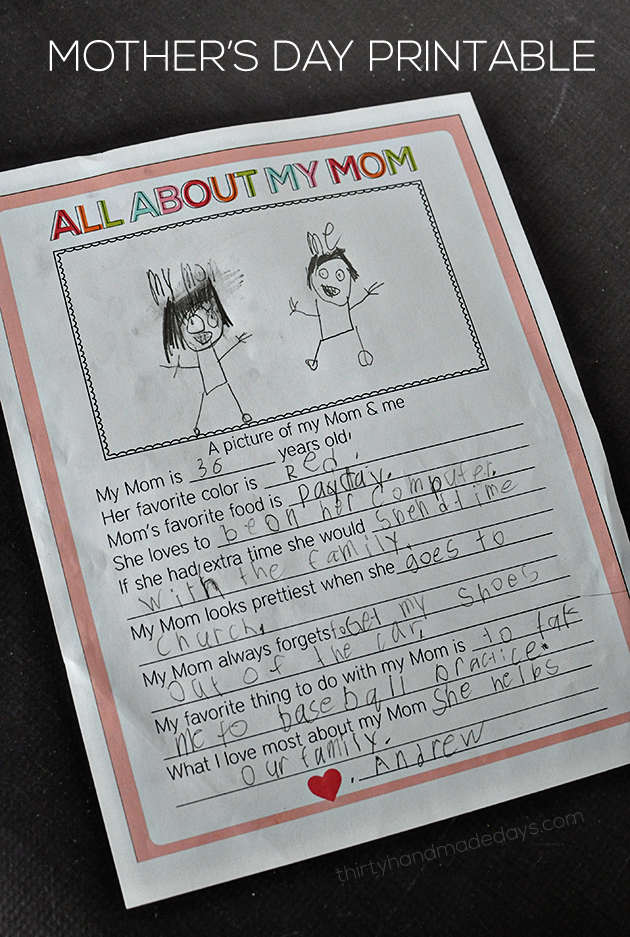 MOTHER'S DAY PRINTABLE
ALL ABOUT MY MOM
my mom
me
A picture of my Mom & me
My Mom is 36 years old.
Her favorite color is Red.
Mom's favorite food is payday.
She loves to be on her computer.
If she had extra time she would spend time
with the family.
My Mom looks prettiest when she goes to
church.
My Mom always forgets to get my shoes
out of the car.
My favorite thing to do with my Mom is to tak
me to baseball practice.
What I love most about my Mom she helbs
our family.
Andrew
thirtyhandmadedays.com